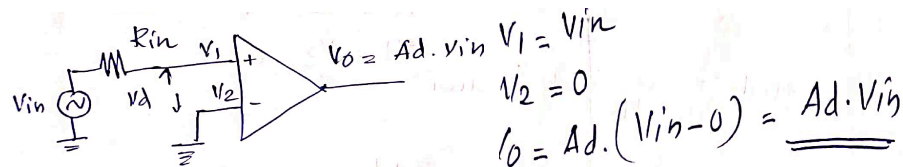 Rin
V1
+
V0 = Ad. Vin
V1 = Vin
Vin
Vd
V2
-
V2 = 0
V0 = Ad. (Vin-0) = Ad. Vin